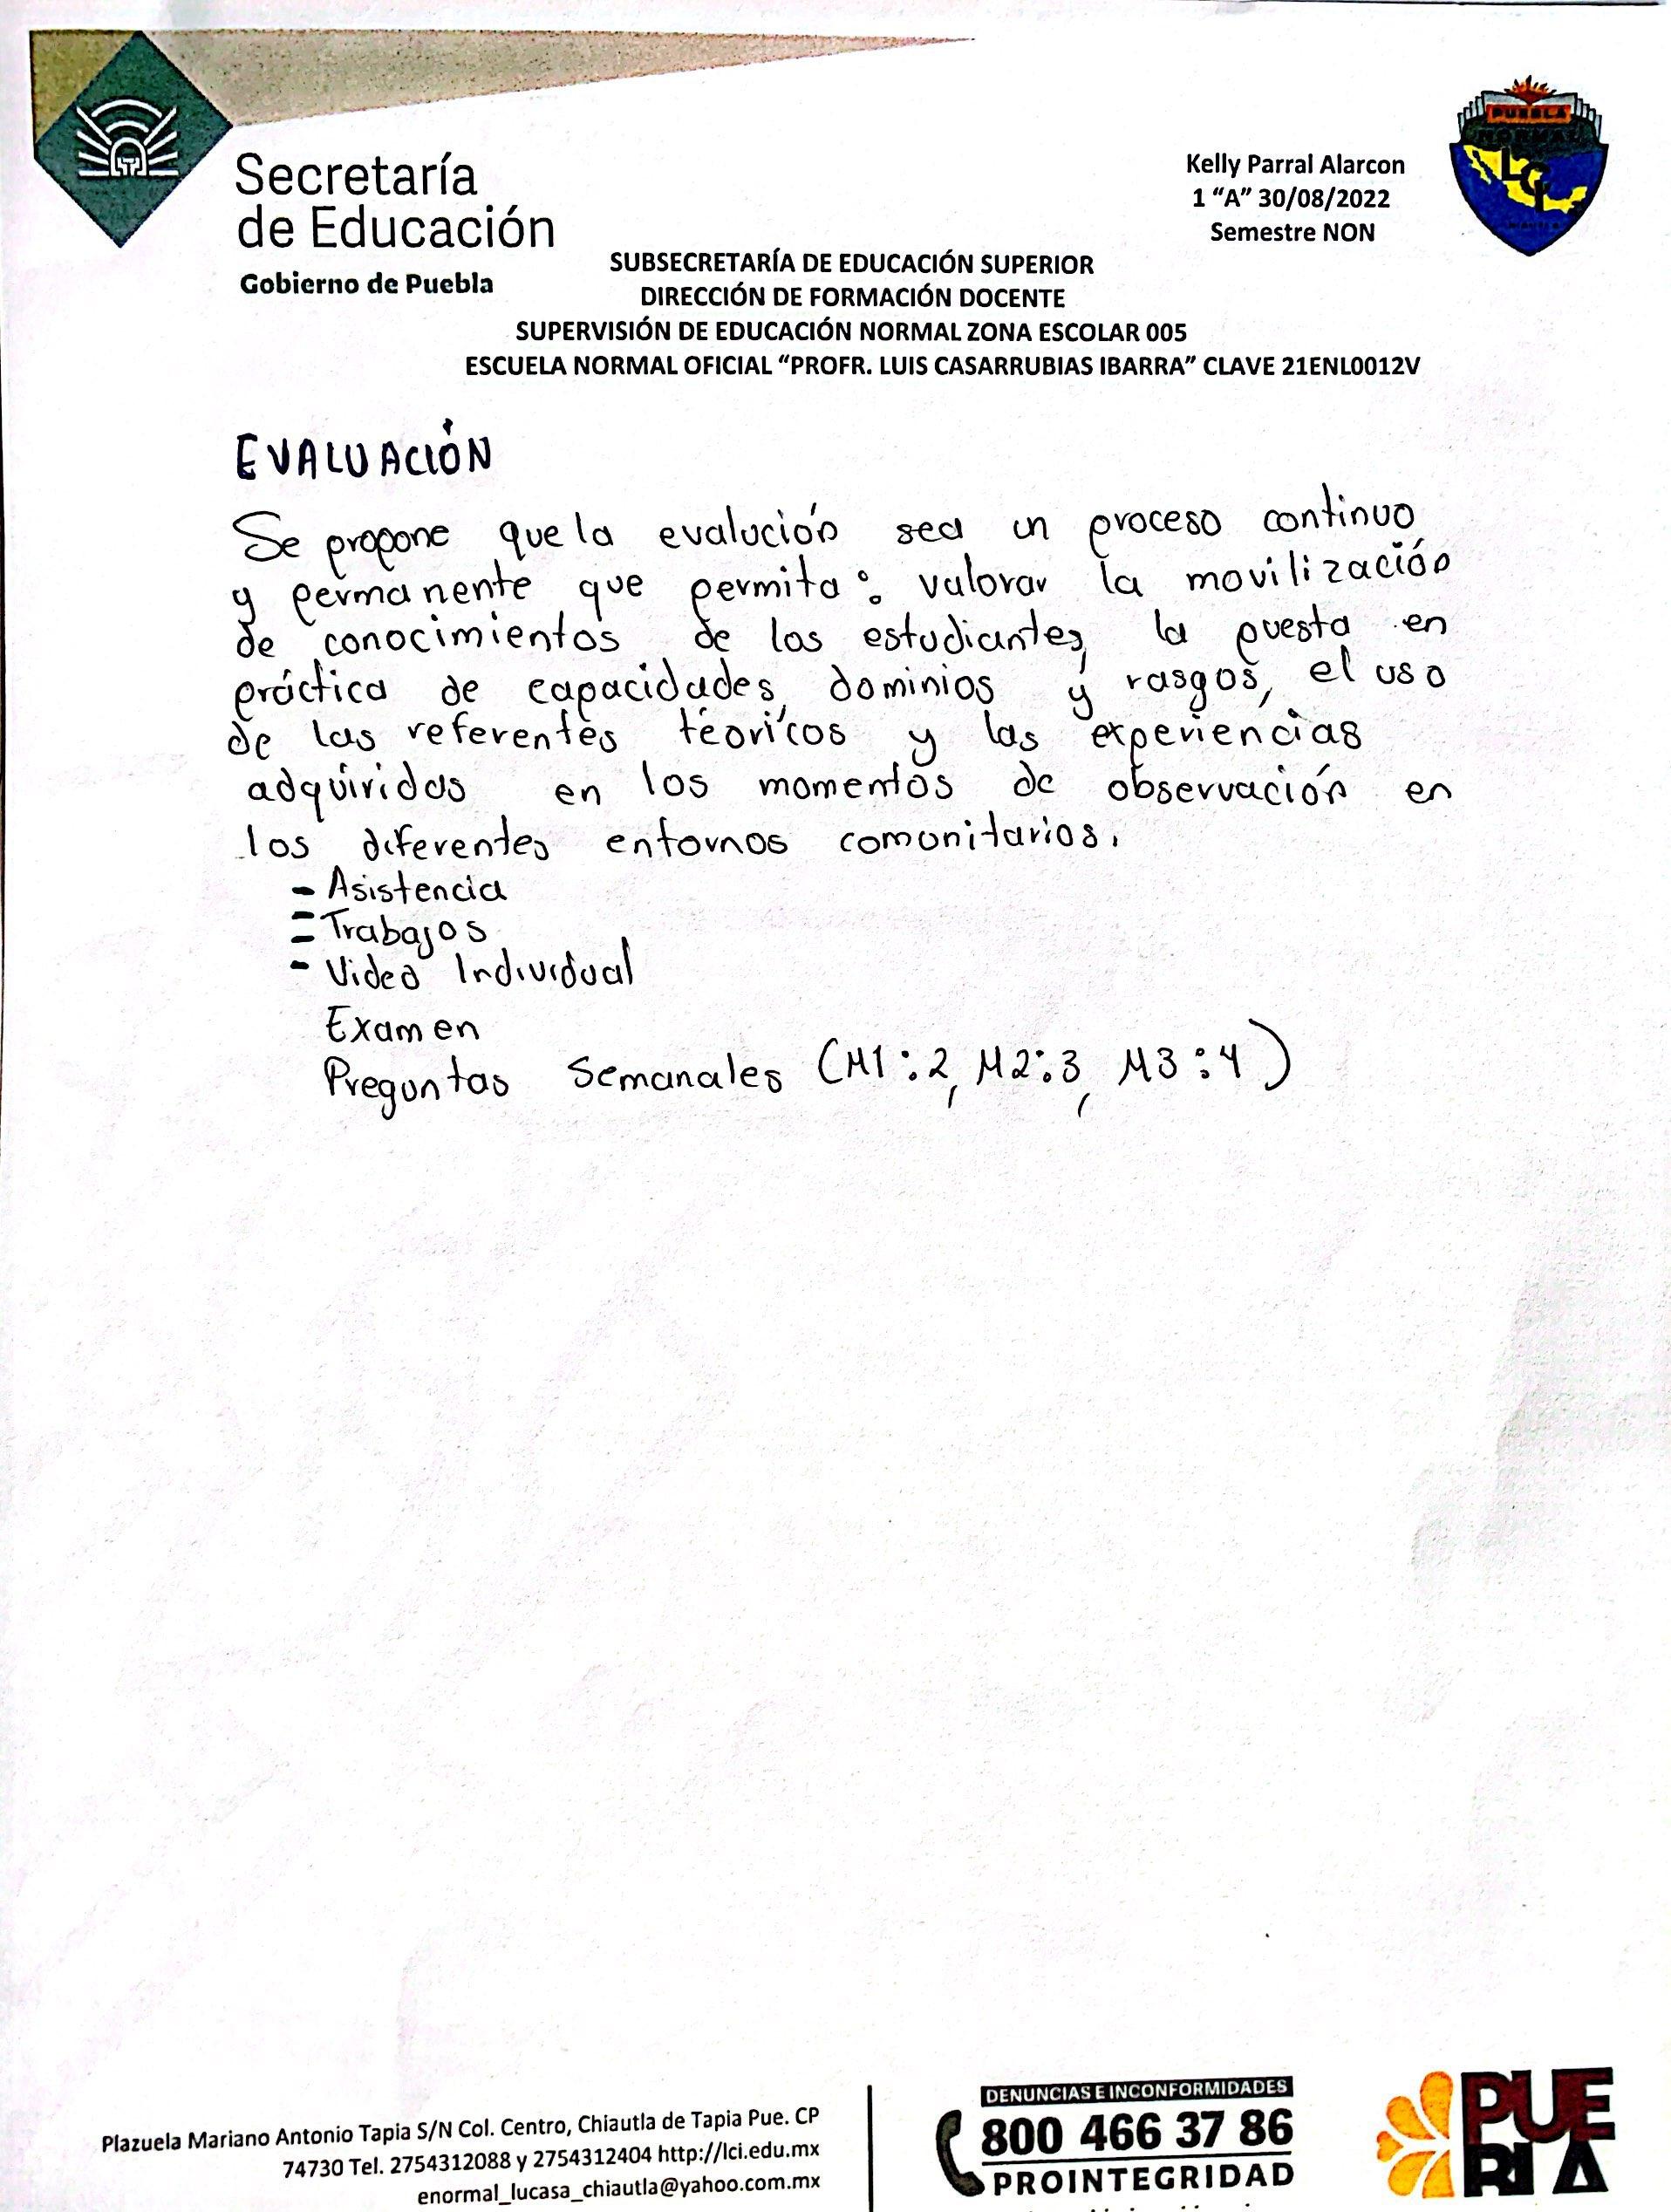 Secretaría
de Educación
Gobierno de Puebla
Kelly Parral Alarcon
1 “A” 30/08/2022
Semestre NON
PUEBLA
NORMAL
LCI
SUBSECRETARÍA DE EDUCACIÓN SUPERIOR
DIRECCIÓN DE FORMACIÓN DOCENTE
SUPERVISIÓN DE EDUCACIÓN NORMAL ZONA ESCOLAR 005
ESCUELA NORMAL OFICIAL “PROFR. LUIS CASARRUBIAS IBARRA” CLAVE 21ENL0012V
EVALUACIÓN
Se propone que la evalución sea un proceso continuo
y permanente que permita: valorar la movilización
de conocimientos de los estudiantes, la puesta en
práctica de capacidades, dominios y rasgos, el uso
de las referentes téoricos y las experiencias
adquiridas en los momentos de observación en
los diferentes entornos comunitarios.
- Asistencia
- Trabajos
- Video Individual
Examen
Preguntas Semanales (M1:2, M2:3, M3:4)
Plazuela Mariano Antonio Tapia S/N Col. Centro, Chiautla de Tapia Pue. CP
74730 Tel. 2754312088 y 2754312404 http://lci.edu.mx
enormal_lucasa_chiautla@yahoo.com.mx
DENUNCIAS E INCONFORMIDADES
800 466 37 86
PROINTEGRIDAD
PUE
BLA